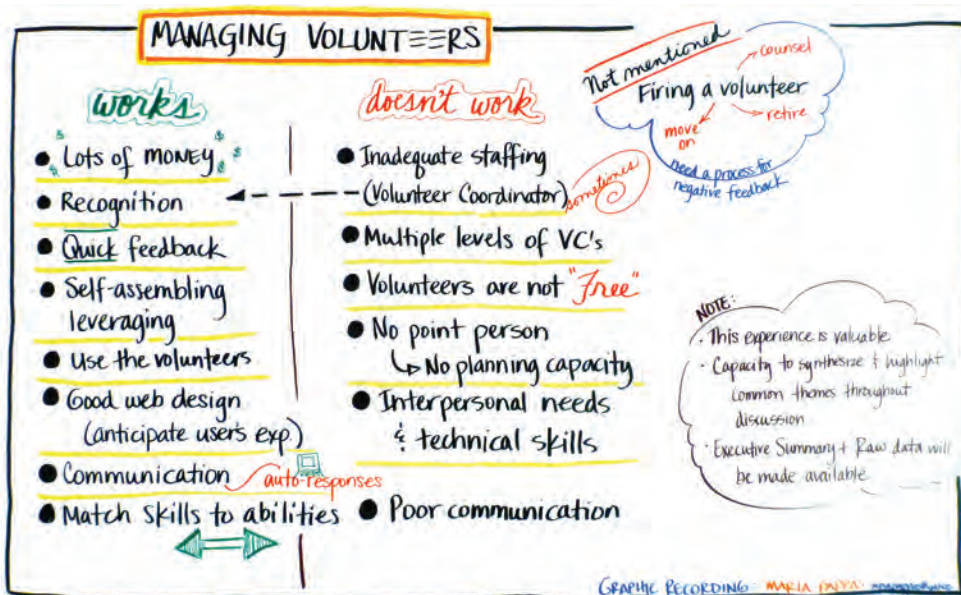 MANAGING VOLUNTEERS
works
• Lots of MONEY
$ $ $ $
• Recognition
• Quick feedback
• Self-assembling
leveraging
• Use the volunteers
• Good web design
(anticipate user's exp.)
• Communication
auto-responses
• Match skills to abilities
doesn't work
• Inadequate staffing
(Volunteer Coordinator)
sometimes
• Multiple levels of VC's
• Volunteers are not "Free"
• No point person
↳ No planning capacity
• Interpersonal needs
& technical skills
• Poor communication
Not mentioned
counsel
Firing a volunteer
move
on
retire
need a process for
negative feedback
NOTE:
• This experience is valuable
• Capacity to synthesize & highlight
common themes throughout
discussion
• Executive Summary + Raw data will
be made available
GRAPHIC RECORDING: MARIA